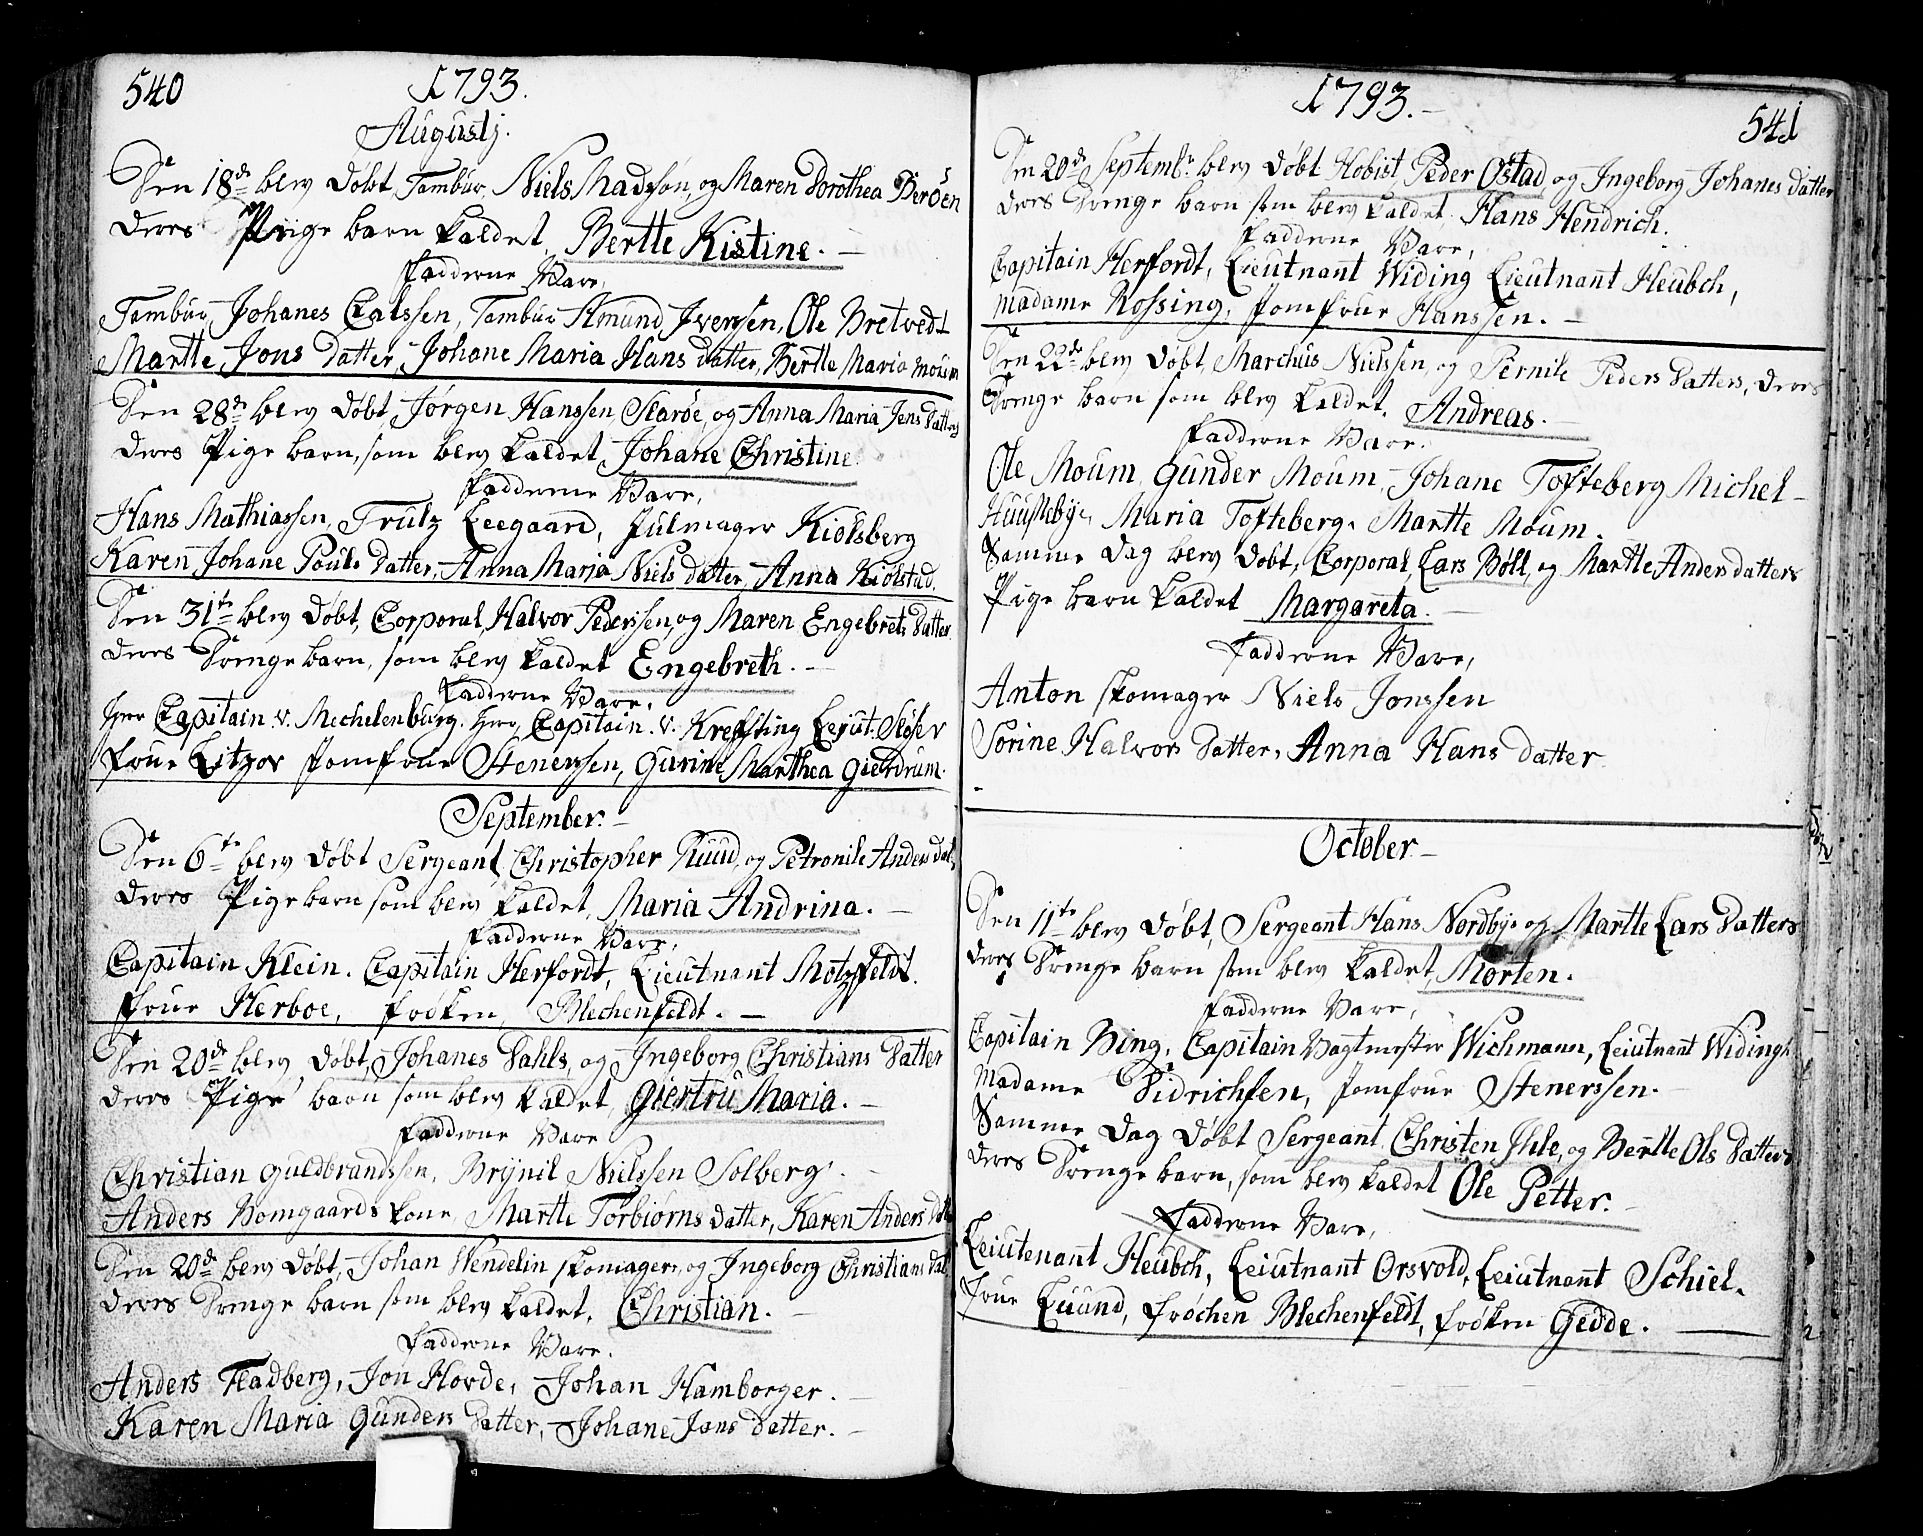 540
1793.
Augustj.
Den 18de blev Døbt, Tambur, Niels Madssøn, og Maren Dorothea Berøen
Deres Piige barn Kaldet, Bertte Kistine.
Fadderne Vare,
Tambur, Johanes Calssen, Tambur Amund Iverssen, Ole Bretvedt
Martte Jons Datter, Johane Maria Hans datter, Bertte Maria Moum
Den 28de blev Døbt, Jørgen Hanssen, Skarøe, og Anna Maria Jens Datters
Deres Pige barn, som blev Kaldet, Johane Christine
Fadderne Vare,
Hans Mathiassen, Trulz Leegaard, Julmager Kiølsberg
Karen Johane Pouls Datter, Anna Maria Niels datter, Anna Kiølstad.
Den 31te blev Døbt, Corporal, Halvor Pederssen, og Maren Engebrets Datter
Deres Drenge barn, som blev Kaldet Engebreth.
Fadderne Vare,
Herr Capitain v. Mechelenburg. Herr, Capitain. v. Kreffting Lejut. Sløser
Frue Litzov Jomfrue Stenerssen, Gurine Marthea Gierdrum.
September.
Den 6te blev Døbt Sergeant, Christopher Ruud, og Petronile Anders dat
Deres Pige barn som blev Kaldet, Maria Andrina.
Fadderne Vare,
Capitain Klein. Capitain Herfordt, Lieutnant Motzfeldt.
Frue Herboe, Frøken, Blechenfeldt.
Den 20de blev Døbt, Johanes Dahls, og Ingeborg Christians Datter
Deres Pige barn som blev Kaldet, Giertru Maria.
Fadderne Vare
Christian Guldbrandssen, Brynil Nielssen Solberg.
Anders Homgaards Kone, Martte Torbiørns datter, Karen Anders Datt
Den 20de blev Døbt, Johan Wendelin Skomager, og Ingeborg Christians Dat
Deres Drenge barn som blev Kaldet, Christian.
Fadderne Vare.
Anders Fladberg, Jon Hovde, Johan Hamborger.
Karen Maria Gunders Datter, Johane Jans Datter.
1793.
541
Den 20de Septembr. blev Døbt Hobist, Peder Ostad, og Ingeborg Johanes datter
Deres Drenge barn som blev Kaldet, Hans Hendrich.
Fadderne Vare,
Capitain Herfordt, Lieutnant Widing Lieutnant Heubch,
Madame Rossing, Jomfrue Hanssen.
Den 22de blev Døbt, Marchus Nielssen, og Pernile Peders Datters, Deres
Drenge barn som blev Kaldet, Andreas.
Fadderne Vare.
Ole Moum, Gunder Moum, Johane Tofteberg Michel
Huustebye, Maria Tofteberg. Martte Moum.
Samme Dag blev Døbt, Corporal, Lars Bøll, og Martte Anders datters
Pige barn Kaldet Margareta.
Fadderne Vare,
Anton Skomager Niels Jonssen
Sorine Halvors Datter, Anna Hans Datter
October
Den 11te blev Døbt, Sergeant Hans Nordbye og Martte Lars Datters
Deres Drenge barn som blev Kaldet, Morten.
Fadderne Vare,
Capitain Bing, Capitain Vagtmester Wichmann, Leiutnant Widingh
Madame Didrichsen, Jomfrue Stenerssen.
Samme Dag Døbt Sergeant, Christen Ihle, og Bertte Ols Datters
Deres Drenge barn, som blev Kaldet Ole Petter.
Fadderne Vare,
Leiutenant Heubch, Leiutnant Orsvold, Leiutnant Schiel.
Frue Luund, Frøchen Blechenfeldt, Frøken Gedde.